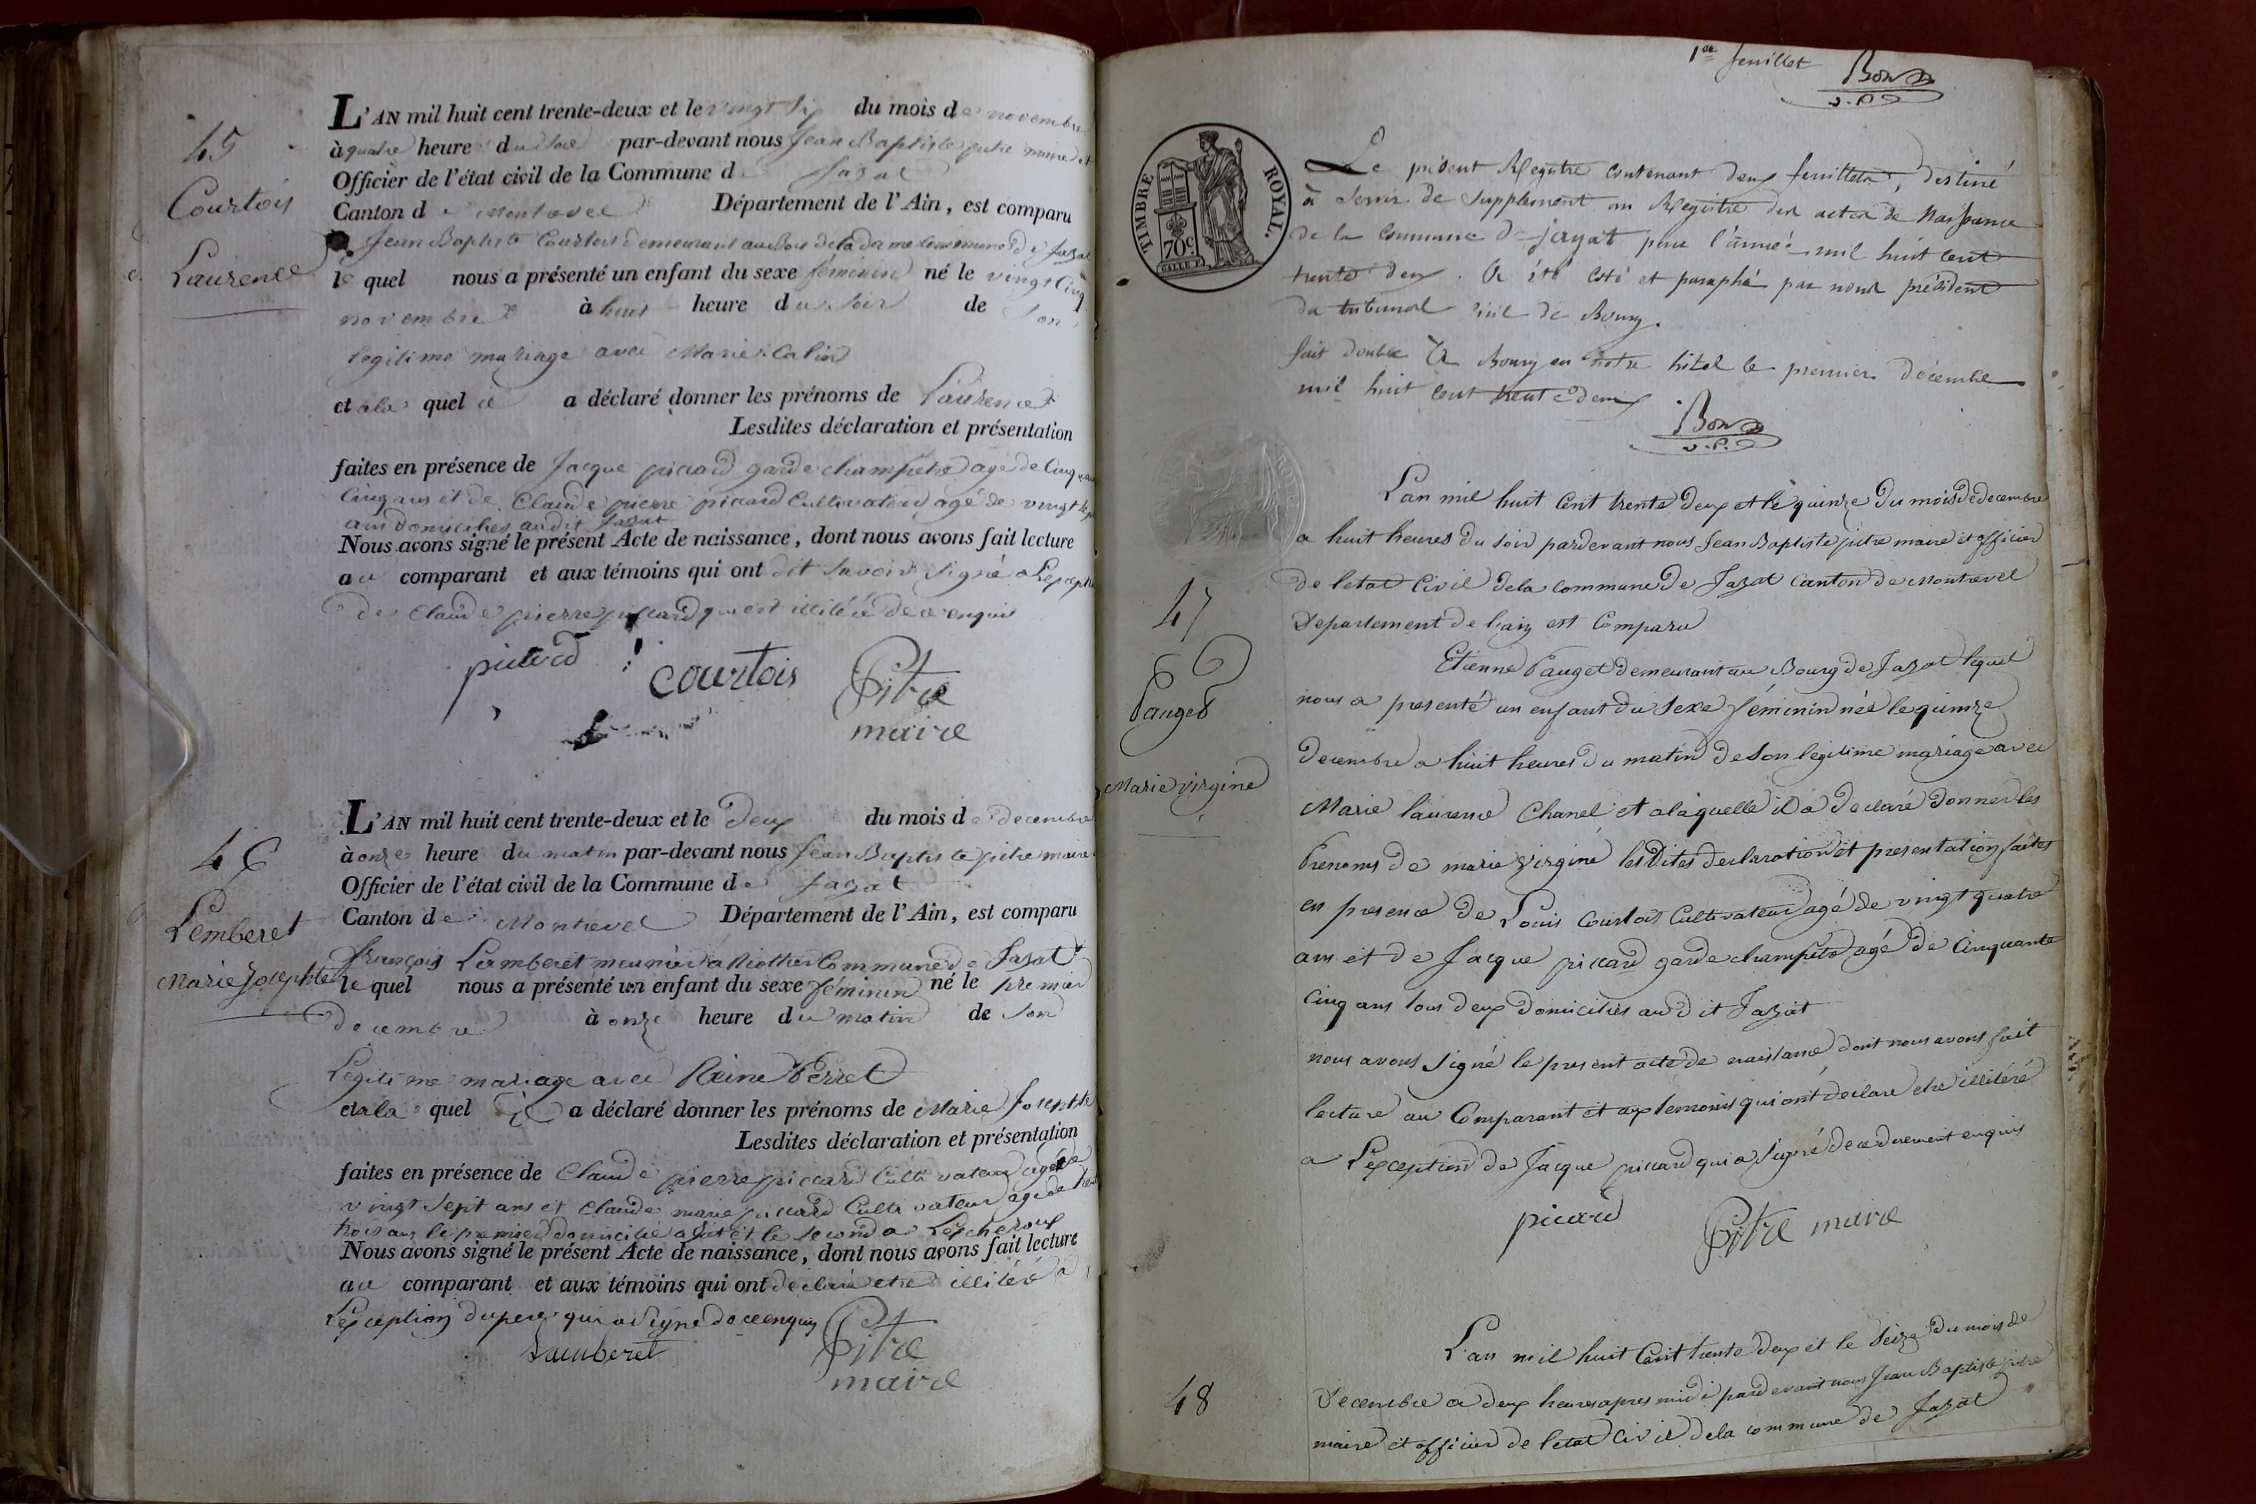 45
Courtois
Laurence
L'AN mil huit cent trente-deux et le vingt six du mois de novembre
à quatre heure du soir par-devant nous Jean Baptiste pitre maire et
Officier de l'état civil de la Commune de Jazat
Canton de Montrevel Département de l'Ain, est comparu
Jean Baptiste Courtois demeurant au Bois de la dame Commune de Jazat
le quel nous a présenté un enfant du sexe féminin né le vingt Cinq
novembre à huit heure du soir de son
legitime mariage avec Marie Calin
et a la quel le a déclaré donner les prénoms de Laurence
Lesdites déclaration et présentation
faites en présence de Jacque piccard garde champetre agé de Cinquante
Cinq ans et de Claude pierre piccard Cultivateur agé de vingt sept
ans domiciliés audit Jazat
Nous avons signé le présent Acte de naissance, dont nous avons fait lecture
au comparant et aux témoins qui ont dit savoir signé a Lexception
de Claude pierre piccard qui est illiteré de ce enquis
picard courtois Pitre
maire
46
Lemberet
Marie Josephte
L'AN mil huit cent trente-deux et le Deux du mois de decembre
à onze heure du matin par-devant nous Jean Baptiste pitre maire
Officier de l'état civil de la Commune de Jazat
Canton de Montrevel Département de l'Ain, est comparu
françois Lamberet meunier a Commune de Jazat
le quel nous a présenté un enfant du sexe féminin né le premier
decembre à onze heure du matin de son
Legitime mariage avec Reine Perret
et a la quel a déclaré donner les prénoms de Marie Josephte
Lesdites déclaration et présentation
faites en présence de Claude pierre piccard Cultivateur agé de
vingt sept ans et Claude marie piccard Cultivateur agé de trente
trois ans le premier domicilié a Jazat et le second a Lescheroux
Nous avons signé le présent Acte de naissance, dont nous avons fait lecture
au comparant et aux témoins qui ont declaré etre illiteré a
Lexception du pere qui a signé de ce enquis
Lamberet Pitre
maire
1er feuillet Bon
v.p.
TIMBRE ROYAL.
70c
Le présent Registre contenant deux feuillets, destiné
à servir de supplement au Registre des actes de Naissance
de la commune de jayat pour l'année mil huit cent
trente deux. A été coté et paraphé par nous président
du tribunal civil de Bourg.
fait double A Bourg en notre hôtel le premier décembre
mil huit cent trente deux
Bon
v.p.
47
Pauget
Marie virgine
Lan mil huit Cent trente deux et le quinze Du mois de decembre
a huit heures du soir pardevant nous Jean Baptiste pitre maire et officier
de letat Civil de la commune De Jazat Canton de Montrevel
Departement de lain est Comparu
Etienne Pauget demeurant au Bourg de Jazat lequel
nous a presenté un enfant du sexe féminin née le quinze
decembre a huit heures du matin de son legitime mariage avec
Marie laurence Chanel et a laquelle il a declaré donner les
Prenoms de marie virgine les Dites declaration et presentation faites
en presence de Louis Courtois Cultivateur agé de vingt quatre
ans et de Jacque piccard garde champetre agé de Cinquante
Cinq ans tous deux domiciliés au dit Jazat
nous avons signé le present acte de naissance dont nous avons fait
lecture au Comparant et aux temoins qui ont declaré etre illiteré
a Lexception de Jacque piccard qui a signé de ce durement enquis
picard Pitre maire
48
Lan mil huit Cent trente deux et le seize du mois de
Decembre a deux heures apres midi pardevant nous Jean Baptiste pitre
maire et officier de letat Civil de la commune de Jazat